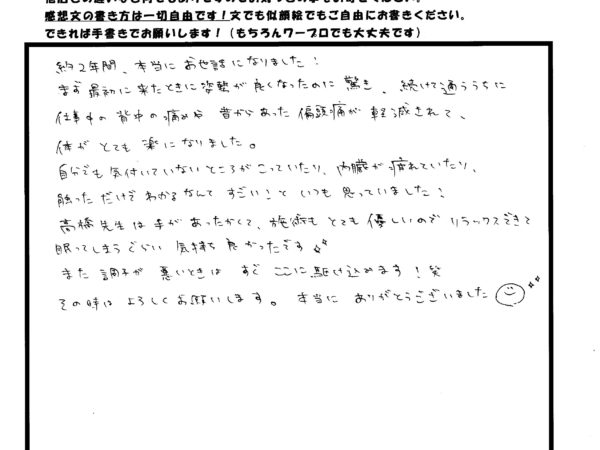 感想文の書き方は一切自由です！文でも似顔絵でもご自由にお書きください。
できれば手書きでお願いします！（もちろんワープロでも大丈夫です）
約2年間、本当にお世話になりました！
まず最初に来たときに姿勢が良くなったのに驚き、続けて通ううちに
仕事中の背中の痛みや昔からあった偏頭痛が軽減されて、
体がとても楽になりました。
自分でも気付いていないところがこっていたり、内臓が疲れていたり、
触っただけでわかるなんてすごい！といつも思っていました！
高橋先生は手があったかくて、施術もとても優しいのでリラックスできて
眠ってしまうぐらい気持ち良かったです
また調子が悪いときはすぐここに駆け込みます！笑
その時はよろしくお願いします。本当にありがとうございました